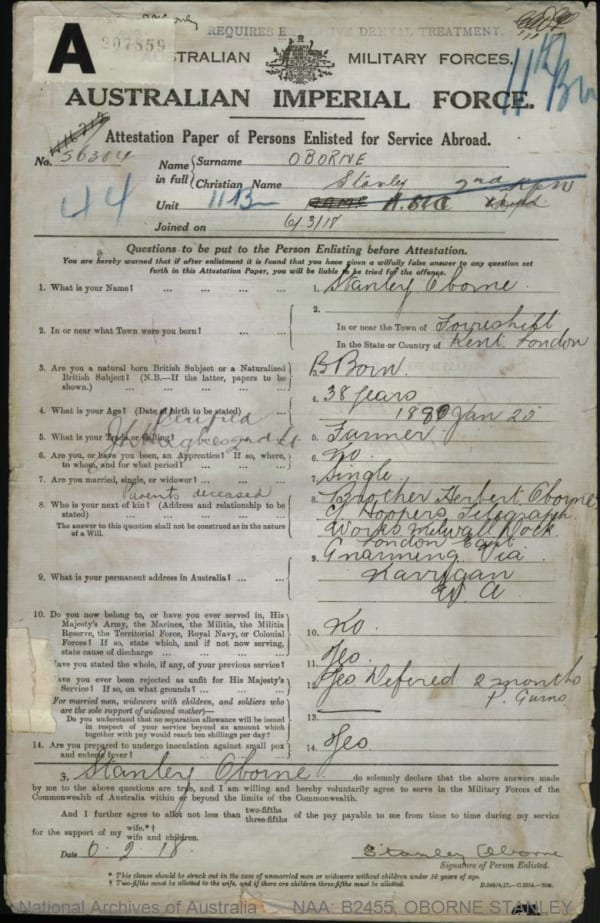 REQUIRES DENTAL TREATMENT.
A
307859
AUSTRALIAN MILITARY FORCES.
11th Bn
AUSTRALIAN IMPERIAL FORCE.
Attestation Paper of Persons Enlisted for Service Abroad.
No. 56304
Name in full
Surname OBORNE
Christian Name Stanley
44
Unit 11 Bn
Joined on 6/3/18
Questions to be put to the Person Enlisting before Attestation.
You are hereby warned that if after enlistment it is found that you have given a wilfully false answer to any question set
forth in this Attestation Paper, you will be liable to be tried for the offence.
1. What is your Name? ... ... ... 1. Stanley Oborne.
2. In or near what Town were you born? ... ... 2. In or near the Town of
In the State or Country of Kent London
3. Are you a natural born British Subject or a Naturalized
British Subject? (N.B.—If the latter, papers to be
shown.) 3. B Born.
4. What is your Age? (Date of birth to be stated) 4. 38 years
1880 Jan 25
5. What is your Trade or Calling? 5. Farmer.
6. Are you, or have you been, an Apprentice? If so, where,
to whom, and for what period? 6. No.
7. Are you married, single, or widower? 7. Single
Parents deceased
8. Who is your next of kin? (Address and relationship to be
stated) 8. Brother Herbert Oborne
The answer to this question shall not be construed as in the nature
of a Will.
C/ Hoppers Telegraph
Works Milwall Dock
London East
9. What is your permanent address in Australia? 9. Gnarming Via
Narrogan
W A
10. Do you now belong to, or have you ever served in, His
Majesty's Army, the Marines, the Militia, the Militia
Reserve, the Territorial Force, Royal Navy, or Colonial
Forces? If so, state which, and if not now serving,
state cause of discharge 10. No.
Have you stated the whole, if any, of your previous service? 11. Yes.
Have you ever been rejected as unfit for His Majesty's
Service? If so, on what grounds? 12. Yes Defered 2 months
P. Gums
For married men, widowers with children, and soldiers who
are the sole support of widowed mother—
Do you understand that no separation allowance will be issued
in respect of your service beyond an amount which
together with pay would reach ten shillings per day? 13.
14. Are you prepared to undergo inoculation against small pox
and enteric fever? 14. Yes
I, Stanley Oborne do solemnly declare that the above answers made
by me to the above questions are true, and I am willing and hereby voluntarily agree to serve in the Military Forces of the
Commonwealth of Australia within or beyond the limits of the Commonwealth.
And I further agree to allot not less than two-fifths three-fifths of the pay payable to me from time to time during my service
for the support of my wife.*† wife and children.
Date 6.2.18. Stanley Oborne
Signature of Person Enlisted.
* This clause should be struck out in the case of unmarried men or widowers without children under 16 years of age.
† Two-fifths must be allotted to the wife, and if there are children three-fifths must be allotted.
National Archives of Australia NAA: B2455, OBORNE STANLEY